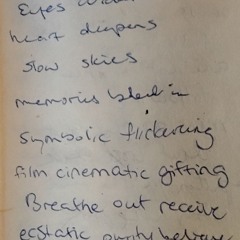 Eyes
heart deepens
slow skies
memories bleed in
symbolic flickering
film cinematic gifting
Breathe out receive
ecstatic purity